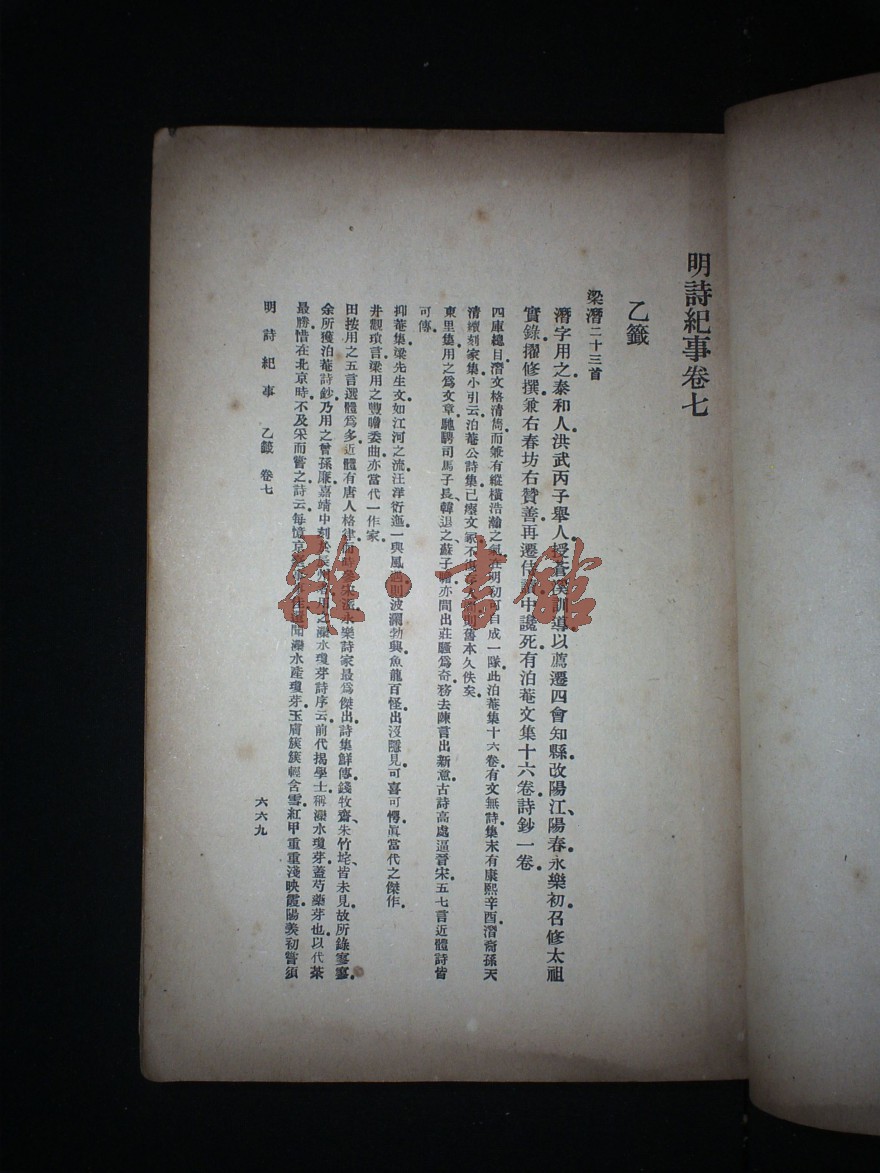 明詩紀事卷七
乙籤
梁潛二十三首
潛字用之泰和人洪武丙子舉人授蒼溪訓導以薦遷四會知縣改陽江、陽春永樂初召修太祖
實錄擢修撰兼右春坊右贊善再遷侍讀中讒死有泊菴文集十六卷詩鈔一卷
四庫總目潛文格清雋而饒有縱橫浩瀚之氣在明初可自成一隊此泊菴集十六卷有文無詩集末有康熙辛酉潛裔孫天
清續刻家集小引云泊菴公詩集已廢文家不 則舊本久佚矣
東里集用之爲文章馳騁司馬子長、韓退之、蘇子瞻亦間出莊騷爲奇務去陳言出新意古詩高處逼晉宋五七言近體詩皆
可傳
抑菴集梁先生文如江河之流汪洋衍迤一與風遇則波瀾勃興魚龍百怪出沒隱見可喜可愕眞當代之傑作
井觀瑣言梁用之豐贍委曲亦當代一作家
田按用之五言選體爲多近體有唐人格律 永樂詩家最爲傑出詩集鮮傳錢牧齋、朱竹垞、皆未見故所錄寥寥
余所獲泊菴詩鈔乃用之曾孫廉嘉靖中刻於 用之灤水瓊芽詩序云前代揭學士稱灤水瓊芽蓋芍藥芽也以代茶
最勝惜在北京時不及采而嘗之詩云每憶京 聞灤水產瓊芽玉膚簇簇輕含雪紅甲重重淺映霞陽羨初嘗須
明詩紀事 乙籤 卷七
六六九
雜·書館